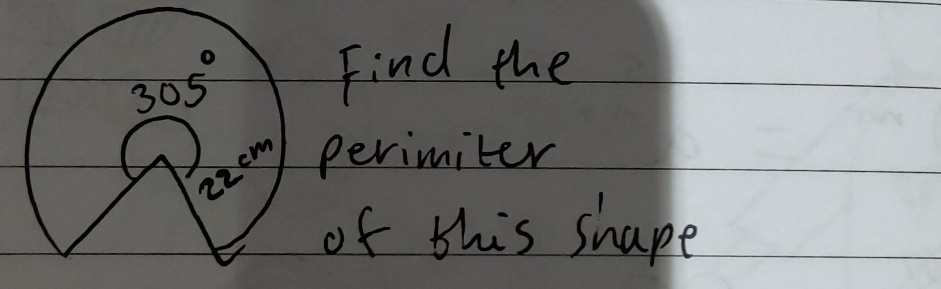 305°
22 cm
Find the
perimiter
of this shape